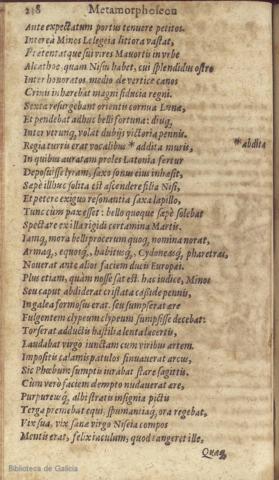 238 Metamorphoseon
Ante expectatum portus tenuere petitos.
Interea Minos Lelegeia littora vastat,
Prætentatque sui vires Mavortis in vrbe
Alcathoe, quam Nisus habet, cui splendidus ostro
Inter honoratos medio de vertice canos
Crinis inhærebat magni fiducia regni.
Sexta resurgebant orientis cornua Lunæ,
Et pendebat adhuc belli fortuna: diuq,
Inter vtrunq, volat dubijs victoria pennis.
Regia turris erat vocalibus * addita muris,
* abdita
In quibus auratam proles Latonia fertur
Deposuisse lyram, saxo sonus eius inhæsit,
Sæpe illhuc solita est ascendere filia Nisi,
Et petere exiguo resonantia saxa lapillo,
Tunc cùm pax esset: bello quoque sæpè solebat
Spectare ex illa rigidi certamina Martis.
Iamq, mora belli procerum quoq, nomina norat,
Armaq,, equosq,, habitusq,, Cydoneasq, pharetras,
Nouerat ante alios faciem ducis Europæi.
Plus etiam, quàm nosse sat est. hac iudice, Minos
Seu caput abdiderat cristata casside pennis,
In galea formosus erat. seu sumpserat ære
Fulgentem clypeum clypeum sumpsisse decebat:
Torserat adductis hastilia lenta lacertis,
Laudabat virgo iunctam cum viribus artem.
Impositis calamis patulos sinuauerat arcus,
Sic Phœbum sumptis iurabat stare sagittis.
Cùm verò faciem dempto nudauerat ære,
Purpureusq, albi stratis insignia pictis
Terga premebat equi, spumantiaq, ora regebat,
Vix sua, vix sanæ virgo Niseia compos
Mentis erat, felix iaculum, quod tangeret ille,
Quaq,
Biblioteca de Galicia